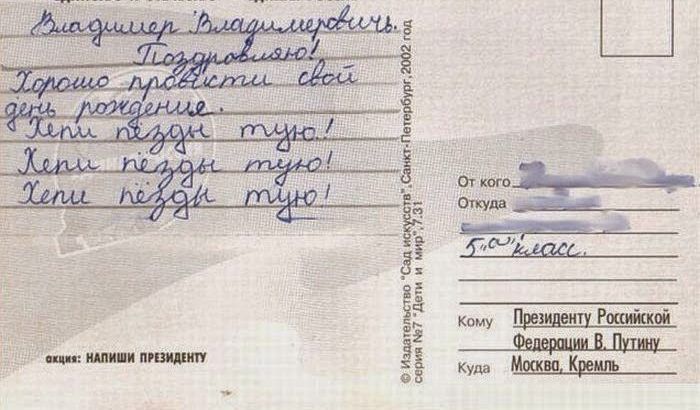 Владимер Владимеровичь.
Поздровляю!
Хорошо провисти свой
день рождение.
Хепи пёзды тую!
Хепи пёзды тую!
Хепи пёзды тую!
акция: НАПИШИ ПРЕЗИДЕНТУ
© Издательство "Сад искусств", Санкт-Петербург, 2002 год
серия №7 "Дети и мир", 7.31
От кого
Откуда
5 "а" класс.
Кому Президенту Российской
Федерации В. Путину
Куда Москва, Кремль